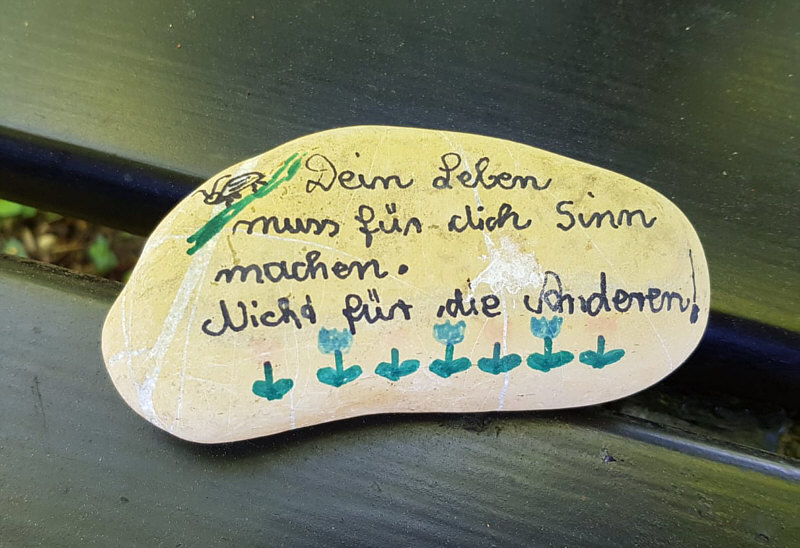 Dein Leben
muss für dich Sinn
machen.
Nicht für die Anderen!